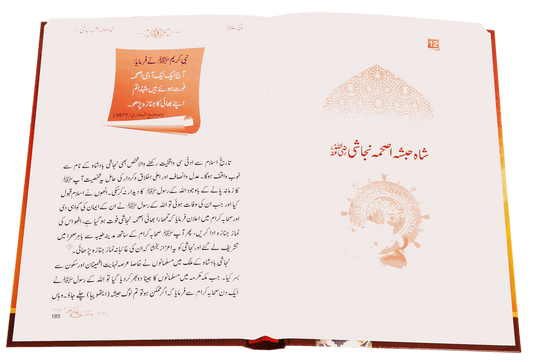 12
شاہ حبشہ اصحمہ نجاشی رضی اللہ عنہ
نبی کریم ﷺ نے فرمایا:
آج ایک نیک آدمی اصحمہ
فوت ہوئے ہیں لہٰذا تم
اپنے بھائی کا جنازہ پڑھو۔
(صحیح البخاری: 3877)
تاریخ اسلام سے ادنی سی واقفیت رکھنے والا شخص بھی نجاشی بادشاہ کے نام سے
خوب واقف ہوگا۔ عدل و انصاف اور اعلی اخلاق و کردار کی حامل یہ شخصیت آپ ﷺ
کا زمانہ پانے کے باوجود اللہ کے رسول ﷺ کا دیدار نہ کر سکی۔ انھوں نے اسلام قبول
کیا اور جب ان کی وفات ہوئی تو اللہ کے رسول ﷺ نے ان کے ایمان کی گواہی دی
اور صحابہ کرام میں اعلان فرمایا کہ تمھارا بھائی اصحمہ نجاشی فوت ہو گیا ہے، اٹھو اس کی
نماز جنازہ ادا کریں، پھر آپ ﷺ صحابہ کرام کے ساتھ مدینہ طیبہ سے باہر صحرا میں
تشریف لے گئے اور نجاشی کو یہ اعزاز بخشا کہ ان کی غائبانہ نماز جنازہ پڑھائی۔
نجاشی بادشاہ کے ملک میں مسلمانوں نے خاصا عرصہ نہایت اطمینان اور سکون سے
بسر کیا۔ جب مکہ مکرمہ میں مسلمانوں کا جینا دوبھر کر دیا گیا تو اللہ کے رسول ﷺ نے
ایک دن صحابہ کرام سے فرمایا کہ اگر ممکن ہو تو تم لوگ حبشہ (ایتھوپیا) چلے جاؤ۔ وہاں
185